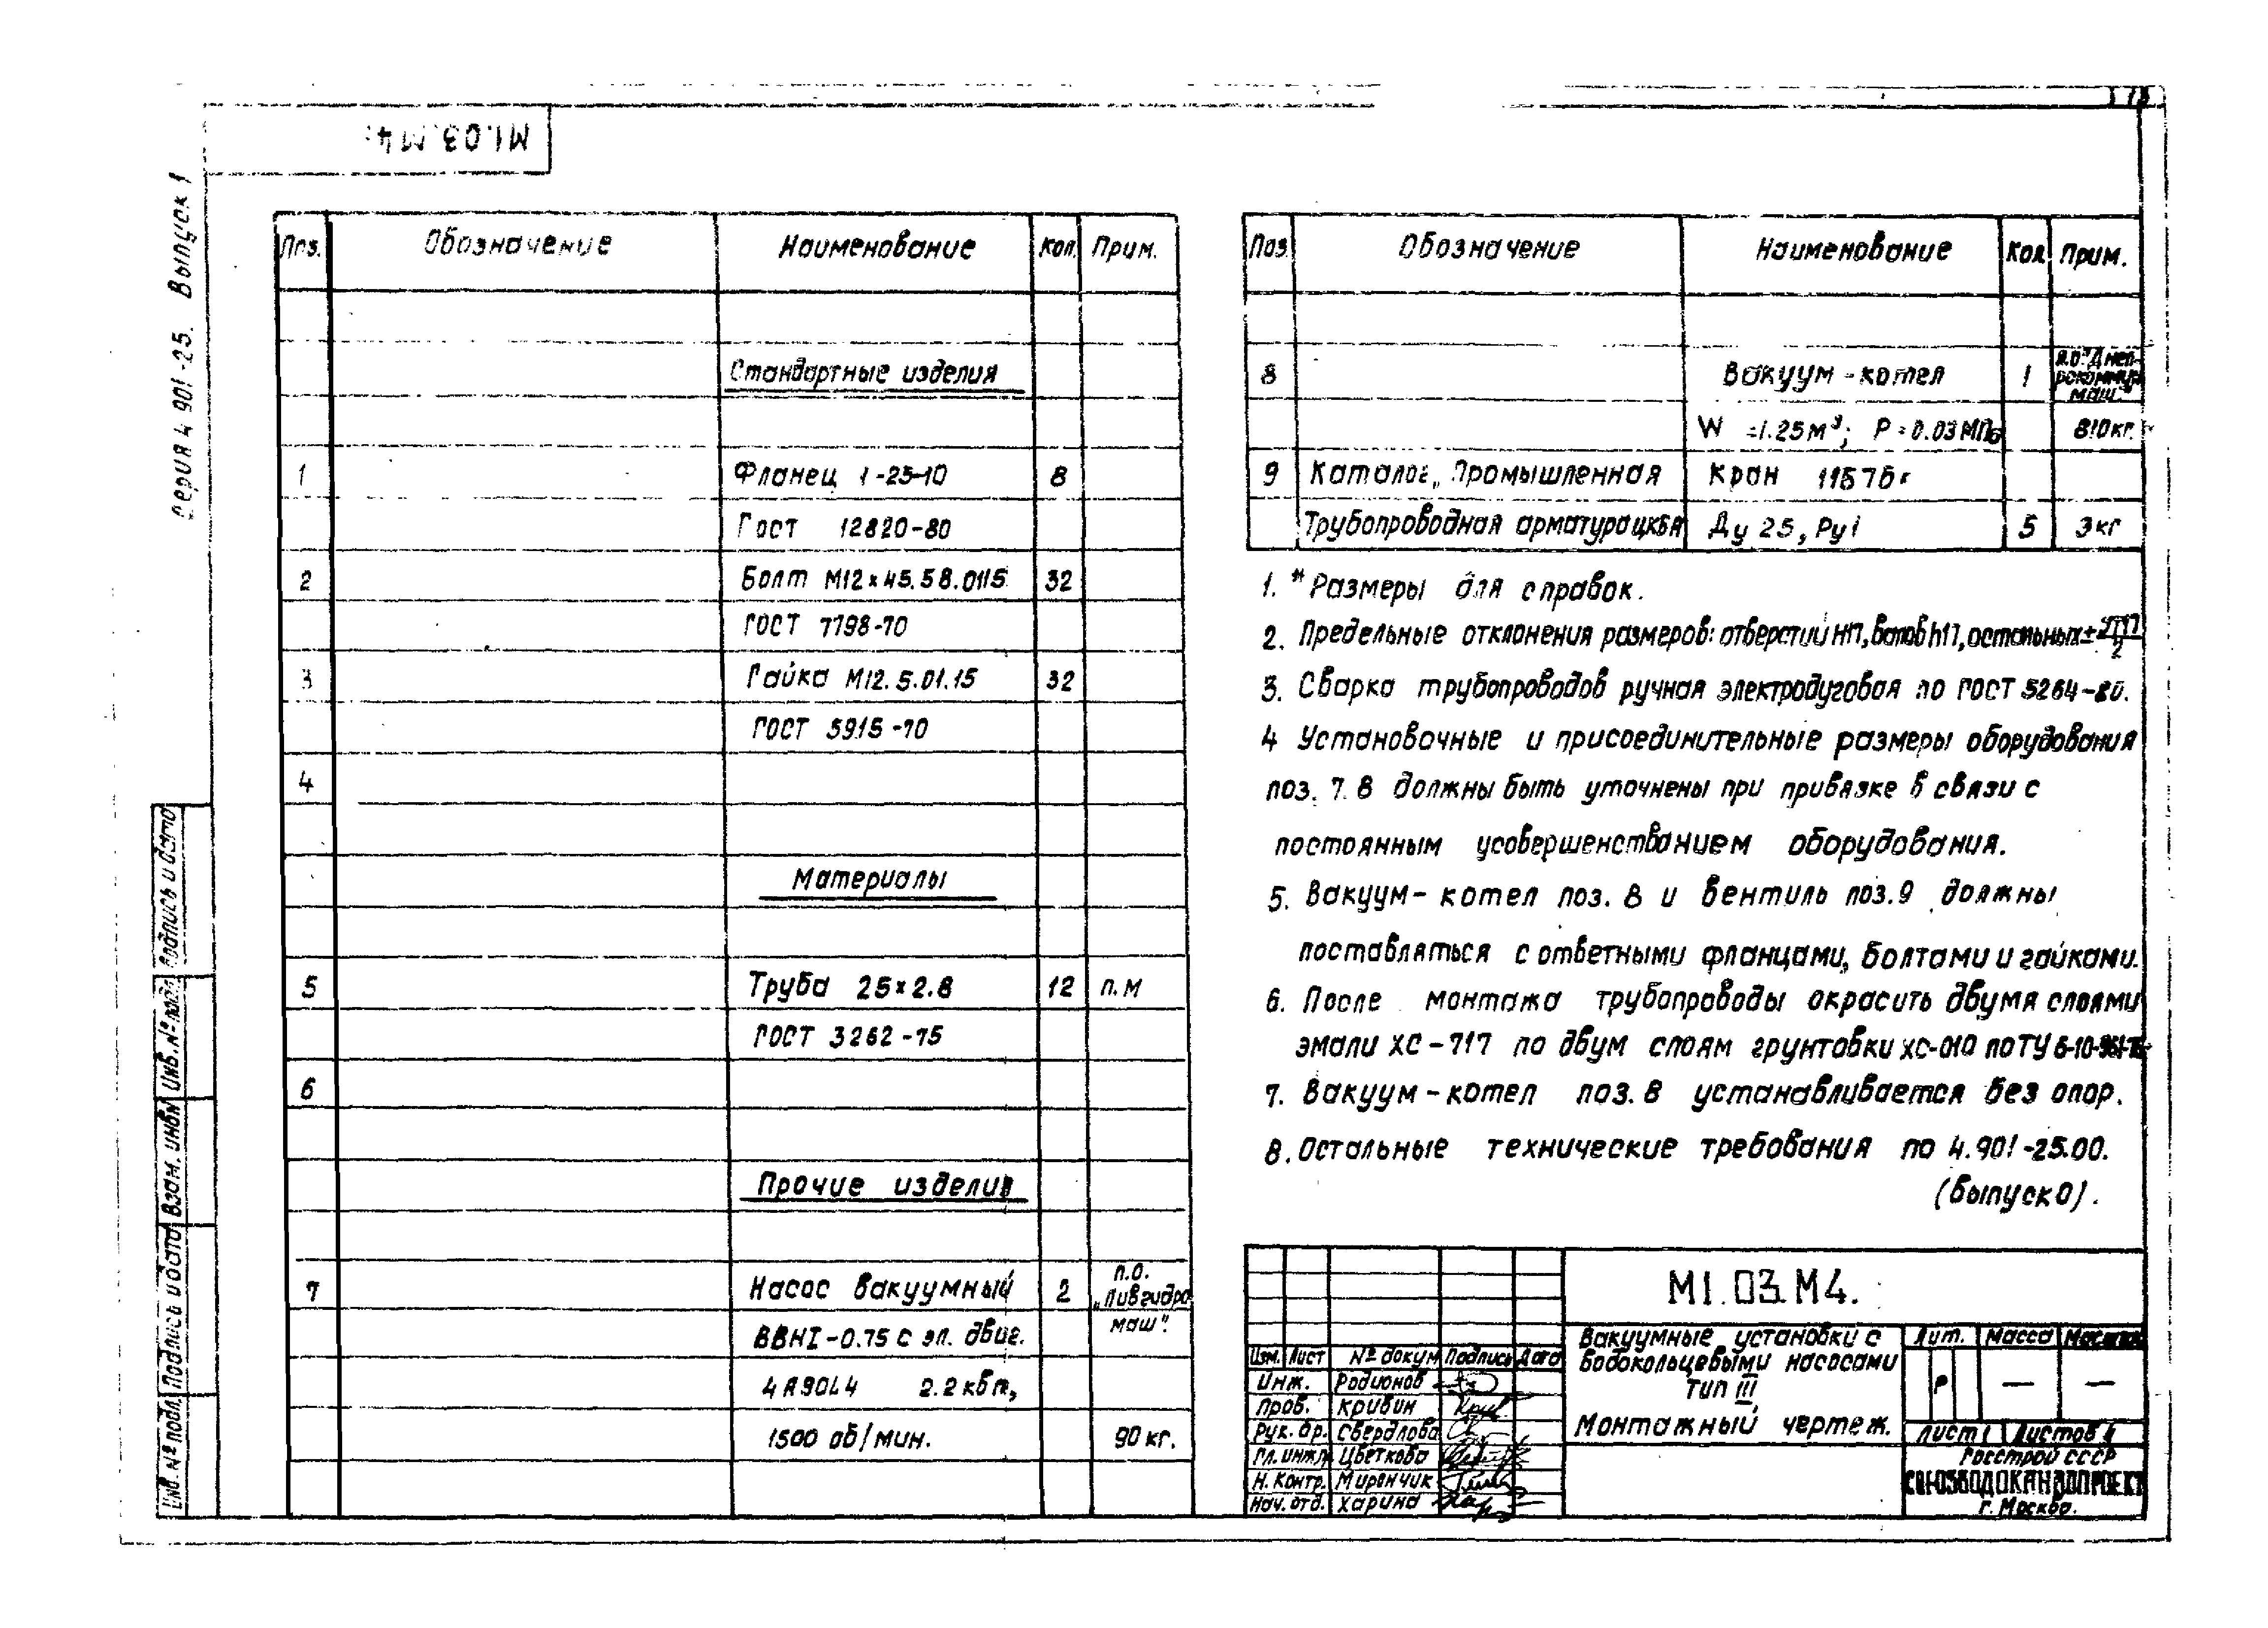 М1.03.М4.
серия 4.901-25. Выпуск 1
Поз. Обозначение Наименование Кол. Прим.
Стандартные изделия
1 Фланец 1-25-10 8
Гост 12820-80
2 Болт М12×45.58.0115 32
ГОСТ 7798-70
3 Гайка М12.5.01.15 32
ГОСТ 5915-70
4
Материалы
5 Труба 25×2.8 12 п.м
ГОСТ 3262-75
6
Прочие изделия
7 Насос вакуумный 2 п.о. „Ливгидро
маш".
ВВН1-0.75 с эл. двиг.
4А90L4 2.2 квт,
1500 об/мин. 90 кг.
Поз. Обозначение Наименование Кол Прим.
8 Вакуум-котел 1
W =1.25 м³; Р=0.03 МПа 810 кг.
9 Каталог „Промышленная Кран 11Б7бк
Трубопроводная арматура ЦКБА Ду 25, Ру1 5 3кг
1. * Размеры для справок.
2. Предельные отклонения размеров: отверстий Н17, валов h17, остальных ±
3. Сварка трубопроводов ручная электродуговая по ГОСТ 5264-80.
4 Установочные и присоединительные размеры оборудования
поз. 7.8 должны быть уточнены при привязке в связи с
постоянным усовершенстванием оборудования.
5. Вакуум-котел поз. 8 и вентиль поз.9 должны
поставляться с ответными фланцами, болтами и гайками.
6. После монтажа трубопроводы окрасить двумя слоями
эмали ХС-717 по двум слоям грунтовки ХС-010 по ТУ
7. Вакуум-котел поз. 8 устанавливается без опор.
8. Остальные технические требования по 4.901-25.00.
(выпуск 0).
М1.03.М4.
Вакуумные установки с
водокольцевыми насосами
Тип III
Монтажный чертеж.
Лит. Масса Масштаб
Р — —
Лист 1 Листов 4
Госстрой СССР
СОЮЗВОДОКАНАЛПРОЕКТ
г. Москва.
Изм. Лист № докум Подпись Дата
Инж. Родионов
Пров. Кривин
Рук. бр. Свердлова
Гл. инж. Цветкова
Н. Контр. Мирончик
Нач. отд. Харина
Подпись и дата
Инв. № дубл
Взам. инв №
Подпись и дата
Инв. № подл.